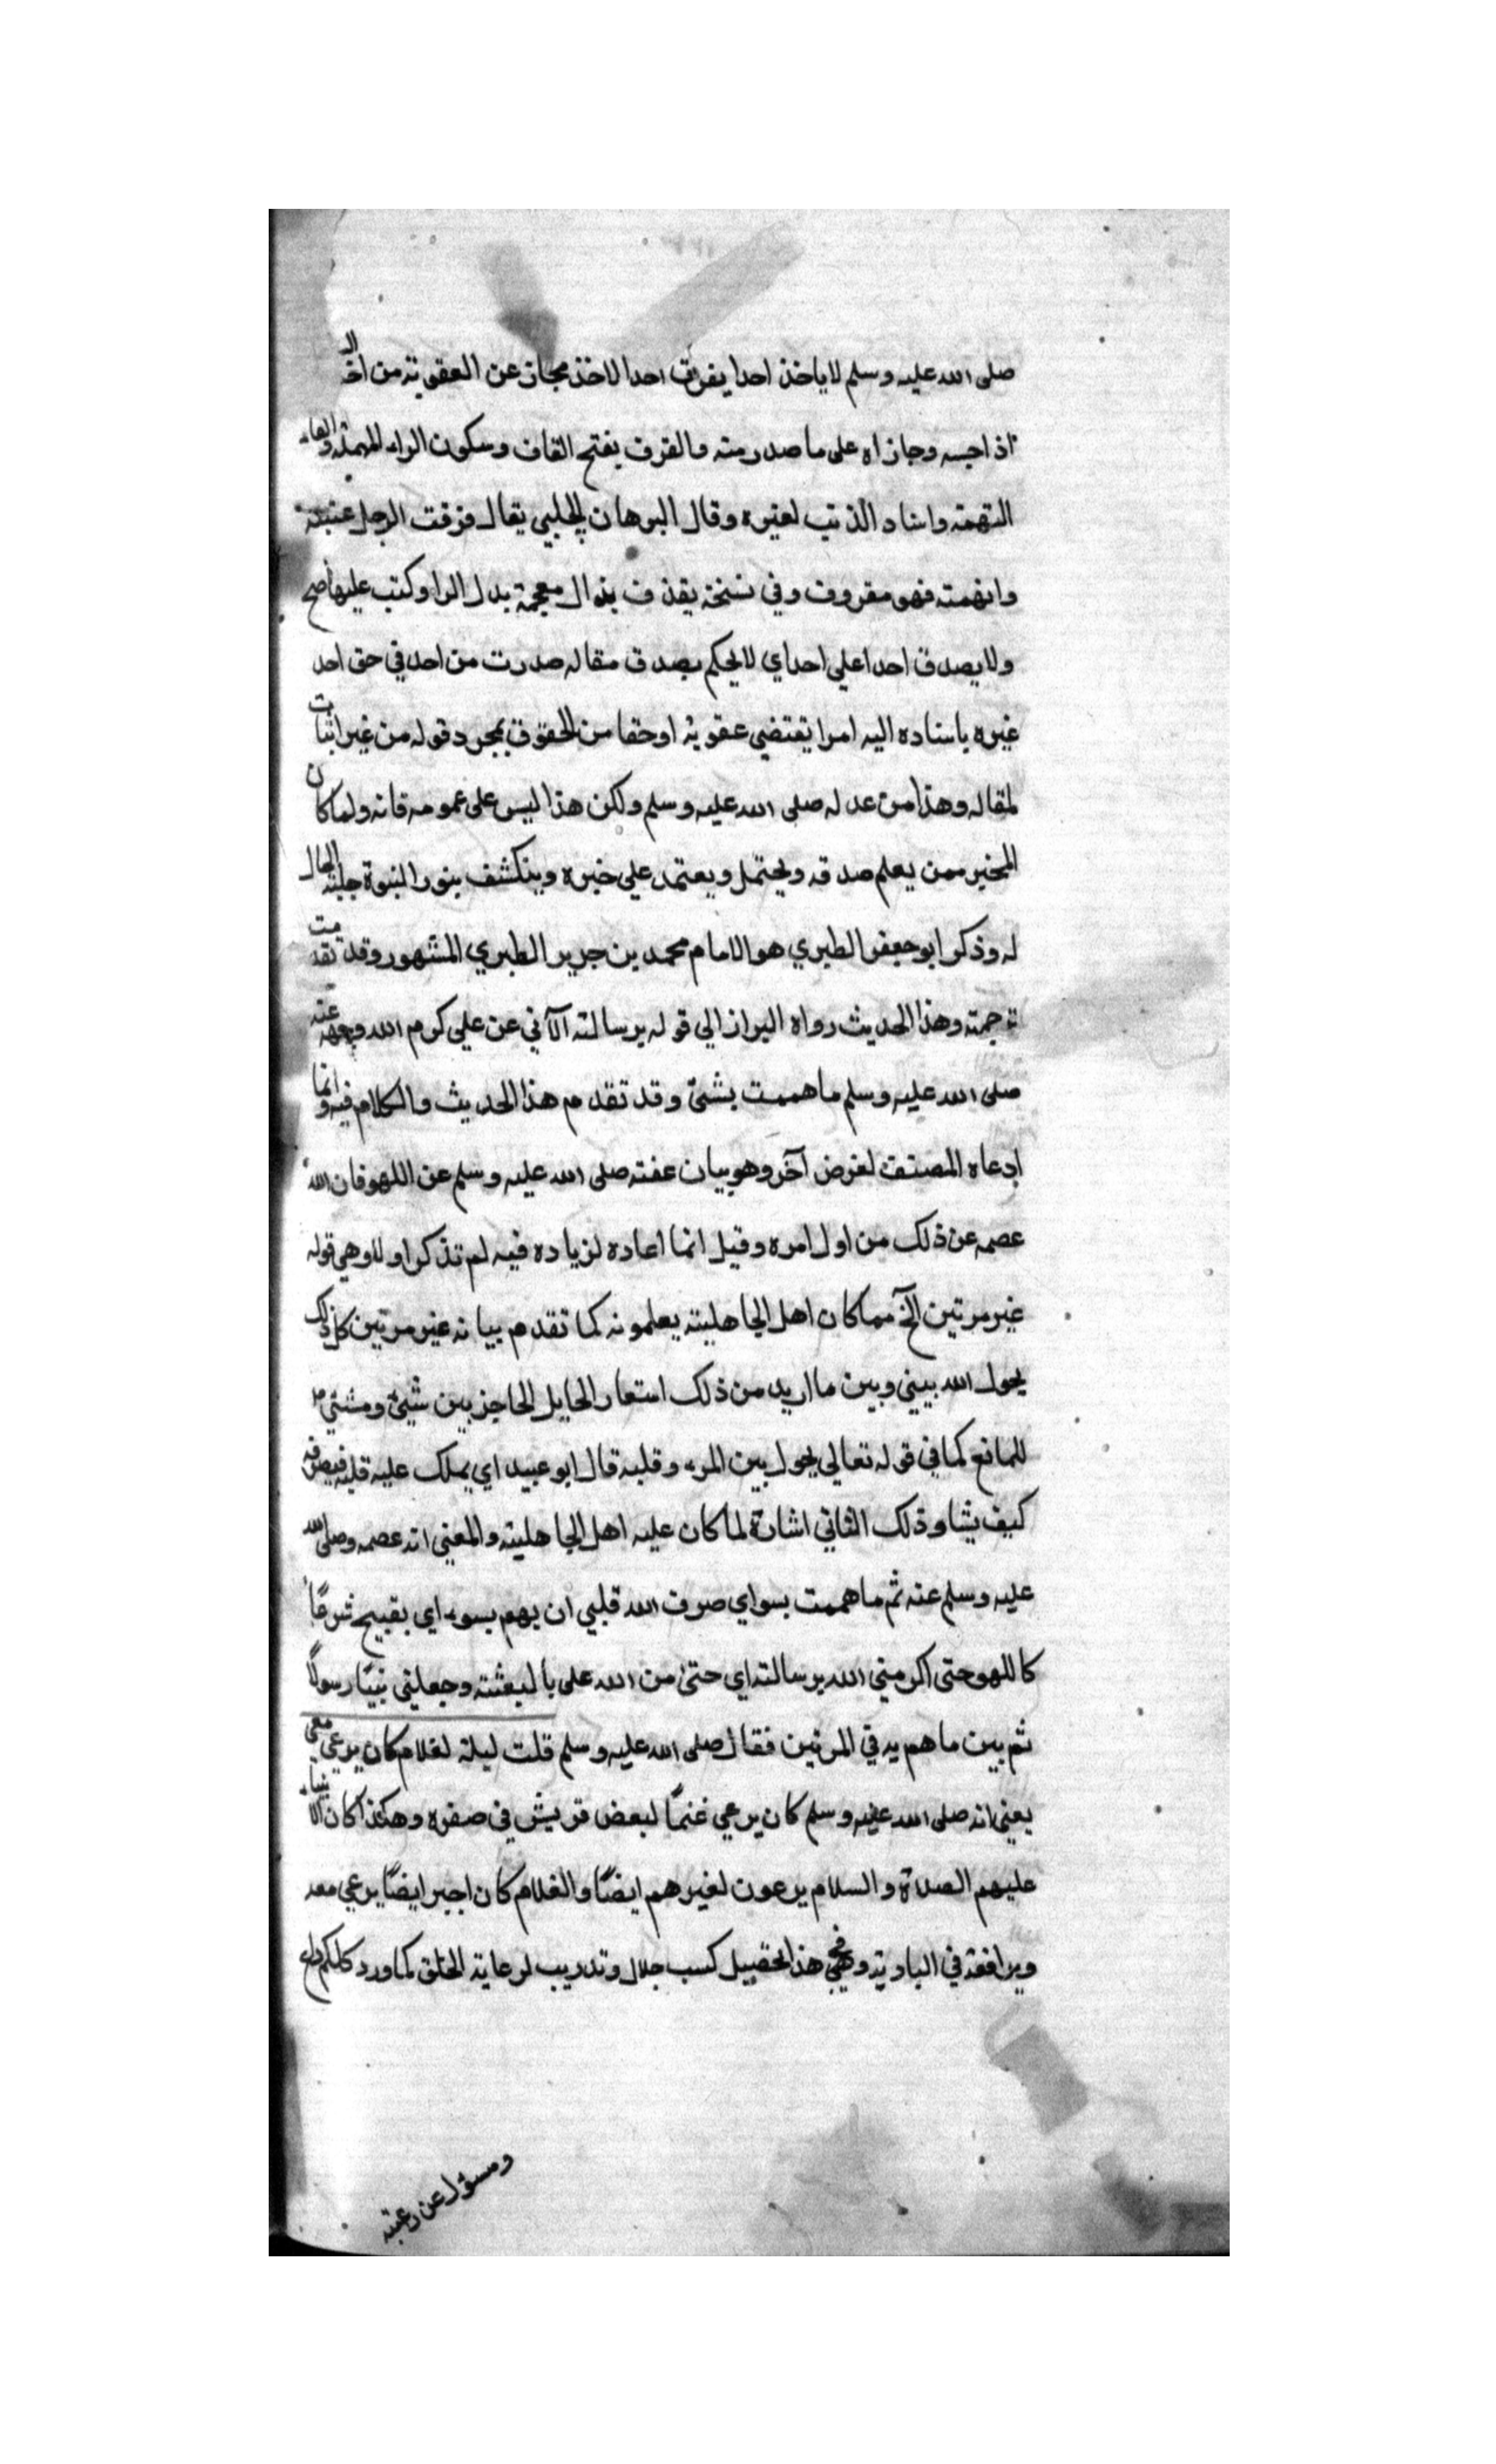 صلى الله عليه وسلم لا ياخذ احدا يقرف احدا الاخذ مجاز عن العقوبة من اخذ
اذا حبسه وجازاه على ما صدر منه والقرف بفتح القاف وسكون الراء المهملة والفاء
التهمة واسناد الذنب لغيره وقال البرهان الحلبي يقال قرفت الرجل عيبته
واتهمته فهو مقروف وفي نسخة يقذف بذال معجمة بدل الرا وكتب عليها صح
ولا يصدق احدا على احد اي لا يحكم بصدق مقاله صدرت من احد في حق احد
غيره باسناده اليه امرا يقتضي عقوبة او حقا من الحقوق بمجرد قوله من غير اثبات
لمقاله وهذا من عدله صلى الله عليه وسلم ولكن هذا ليس على عمومه فانه ولما كان
المخبر ممن يعلم صدقه ويحتمل ويعتمد علي خبره وينكشف بنور النبوة جلية الحال
له وذكر ابو جعفر الطبري هو الامام محمد بن جرير الطبري المشهور وقد تقدمت
ترجمته وهذا الحديث رواه البزاز الي قوله برسالته الآتي عن علي كرم الله وجهه عنه
صلى الله عليه وسلم ما هممت بشئ وقد تقدم هذا الحديث والكلام فيه وانما
ادعاه المصنف لغرض آخر وهو بيان عفته صلى الله عليه وسلم عن اللهو فان الله
عصمه عن ذلك من اول امره وقيل انما اعاده لزياده فيه لم تذكر اولا وهي قوله
غير مرتين الخ مما كان اهل الجاهلية يعلمونه كما تقدم بيانه غير مرتين كل ذلك
يحول الله بيني وبين ما اريد من ذلك استعار الحايل الحاجز بين شيئ وشئي
للمانع كما في قوله تعالي يحول بين المرء وقلبه قال ابو عبيد اي يملك عليه قلبه فيصرفه
كيف يشا وذلك الثاني اشارة لما كان عليه اهل الجاهلية والمعني انه عصمه وصلى الله
عليه وسلم عنه ثم ما هممت بسو اي صرف الله قلبي ان يهم بسوء اي بقبيح شرعًا
كاللهو حتى اكرمني الله برسالته اي حتى من الله على بالبعثة وجعلني نبيًا رسولًا
ثم بين ما هم به في المرتين فقال صلى الله عليه وسلم قلت ليلة لغلام كان يرعي معي
يعني انه صلى الله عليه وسلم كان يرعي غنمًا لبعض قريش في صغره وهكذا كان الانبياء
عليهم الصلاة والسلام يرعون لغيرهم ايضًا والغلام كان اجير ايضًا يرعي معه
ويرافقه في البادية وفي هذا تحصيل كسب حلال وتدريب لرعاية الخلق كما ورد كلكم راع
ومسؤل عن رعيته